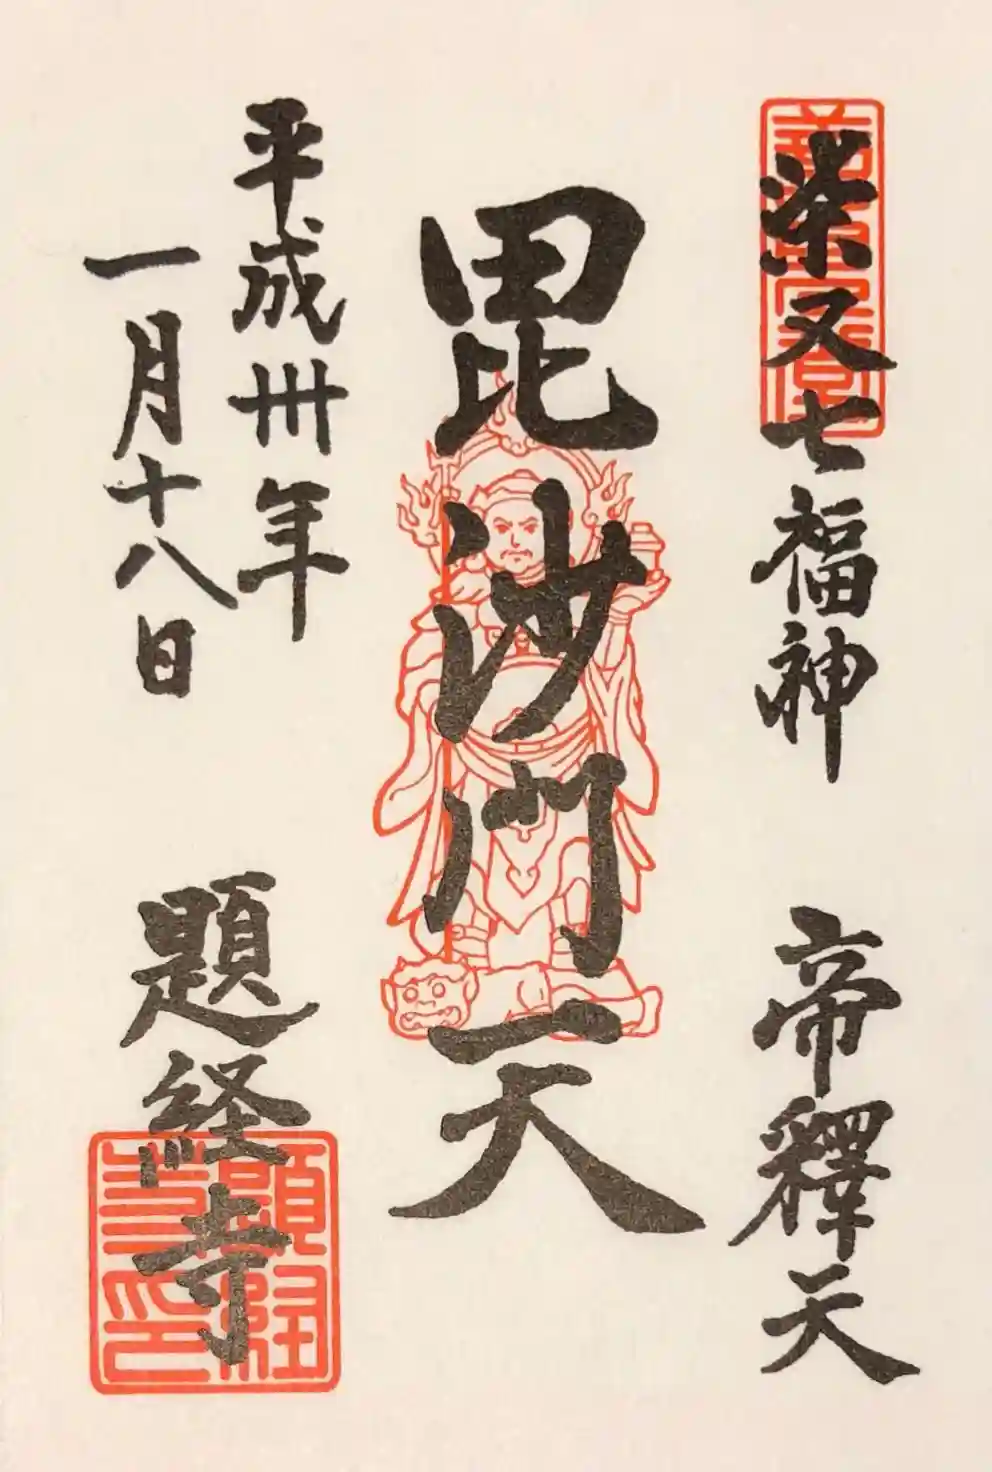 柴又七福神 帝釋天
毘沙門天
平成卅年
一月十八日
題経寺
題経寺印